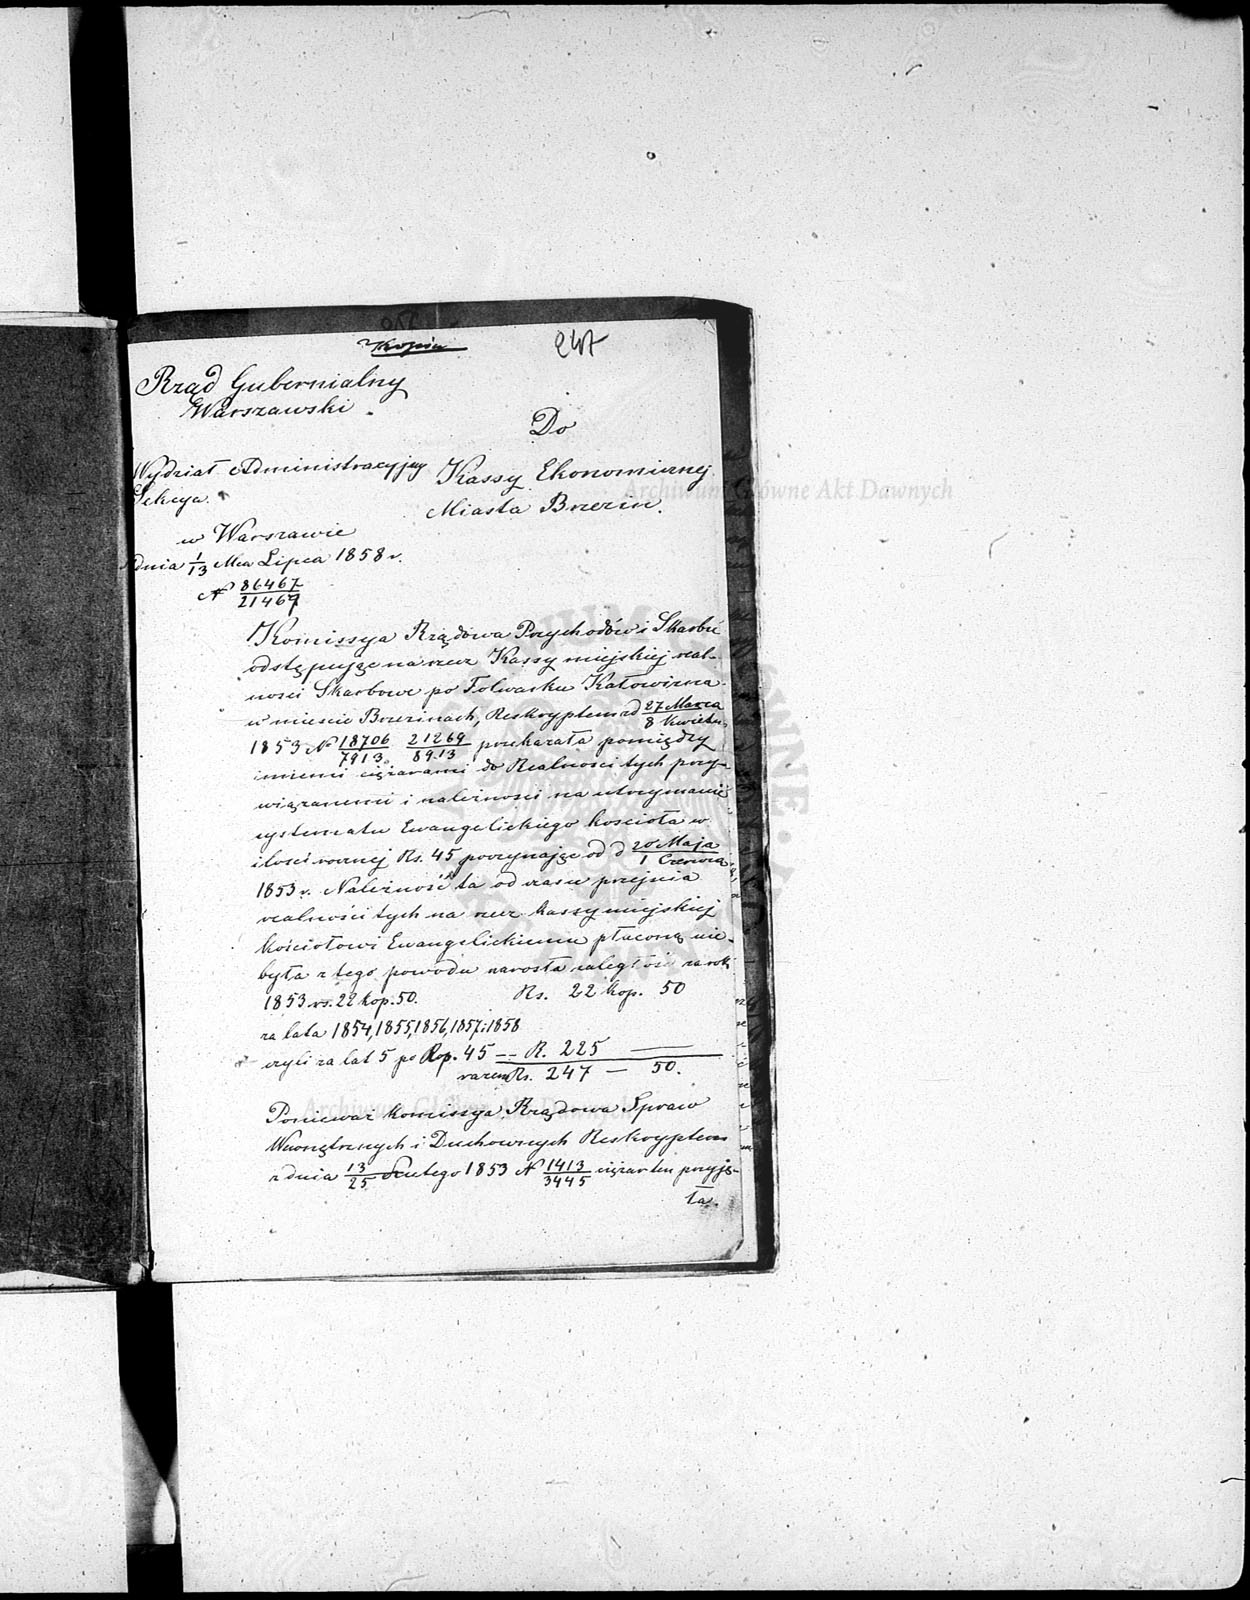 Kopia
247
Rząd Gubernialny
Warszawski.
Do
Wydział Administracyjny
Kassy Ekonomicznej
Sekcya
Miasta Brzezin.
w Warszawie
dnia 1/13 Mca Lipca 1858 r.
N 86467/21467
Komissya Rządowa Przychodów i Skarbu
odstępując na rzecz Kassy miejskiej real-
ności Skarbowe po Folwarku
w mieście Brzezinach, Reskryptem z d 27 Marca/8 Kwietn.
1853 N 18706/7913 21269/8913 przekazała pomiędzy
innemi ciężarami do Realności tych przy-
wiązanemi i należności na utrzymanie
systematu Ewangelickiego kościoła w
ilości rocznej Rs. 45 poczynając od d 20 Maja/1 Czerwca
1853 r. Należność ta od czasu przejęcia
realności tych na rzecz kassy miejskiej
Kościołowi Ewangelickiemu płaconą nie-
była z tego powodu narosła zaległość za rok
1853 rs. 22 kop. 50. Rs. 22 kop. 50
za lata 1854, 1855, 1856, 1857 i 1858
czyli za lat 5 po Rop. 45 -- R. 225 —
razem Rs. 247 — 50.
Ponieważ Komissya Rządowa Spraw
Wewnętrznych i Duchownych Reskryptem
z dnia 13/25 Lutego 1853 N 1413/3445 ciężar ten przyję-
ła.
Archiwum Główne Akt Dawnych
Archiwum Główne Akt Dawnych